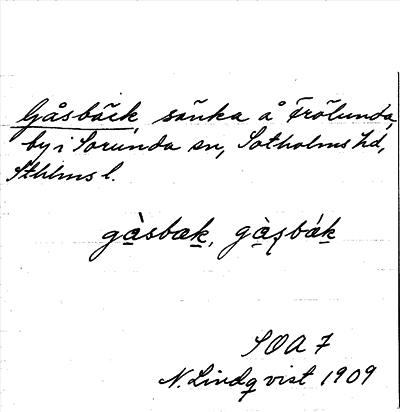 Gåsbäck, sänka å Frölunda,
by i Sorunda sn, Sotholms hd,
Sthlms l.
gàsbæk, gàsbák
SOA 7
N. Lindqvist 1909